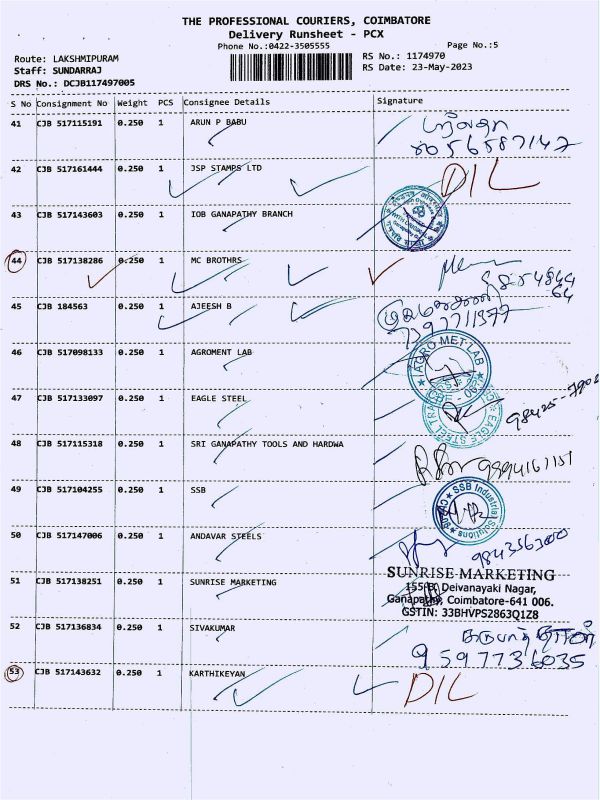 THE PROFESSIONAL COURIERS, COIMBATORE
Delivery Runsheet - PCX
Phone No.:0422-3505555 Page No.:5
Route: LAKSHMIPURAM RS No.: 1174970
Staff: SUNDARRAJ RS Date: 23-May-2023
DRS No.: DCJB117497005
S No Consignment No Weight PCS Consignee Details Signature
41 CJB 517115191 0.250 1 ARUN P BABU
8056587147
42 CJB 517161444 0.250 1 JSP STAMPS LTD DIL
43 CJB 517143603 0.250 1 IOB GANAPATHY BRANCH
44 CJB 517138286 0.250 1 MC BROTHRS
45 CJB 184563 0.250 1 AJEESH B
7397711977
46 CJB 517098133 0.250 1 AGROMENT LAB AGRO MET LAB
47 CJB 517133097 0.250 1 EAGLE STEEL EAGLE STEEL
48 CJB 517115318 0.250 1 SRI GANAPATHY TOOLS AND HARDWA
49 CJB 517104255 0.250 1 SSB SSB Industrial Solutions
50 CJB 517147006 0.250 1 ANDAVAR STEELS 9843563000
51 CJB 517138251 0.250 1 SUNRISE MARKETING SUNRISE MARKETING
155-B, Deivanayaki Nagar,
Ganapathy, Coimbatore-641 006.
GSTIN: 33BHVPS2863Q1Z8
52 CJB 517136834 0.250 1 SIVAKUMAR
9597736035
53 CJB 517143632 0.250 1 KARTHIKEYAN DIL